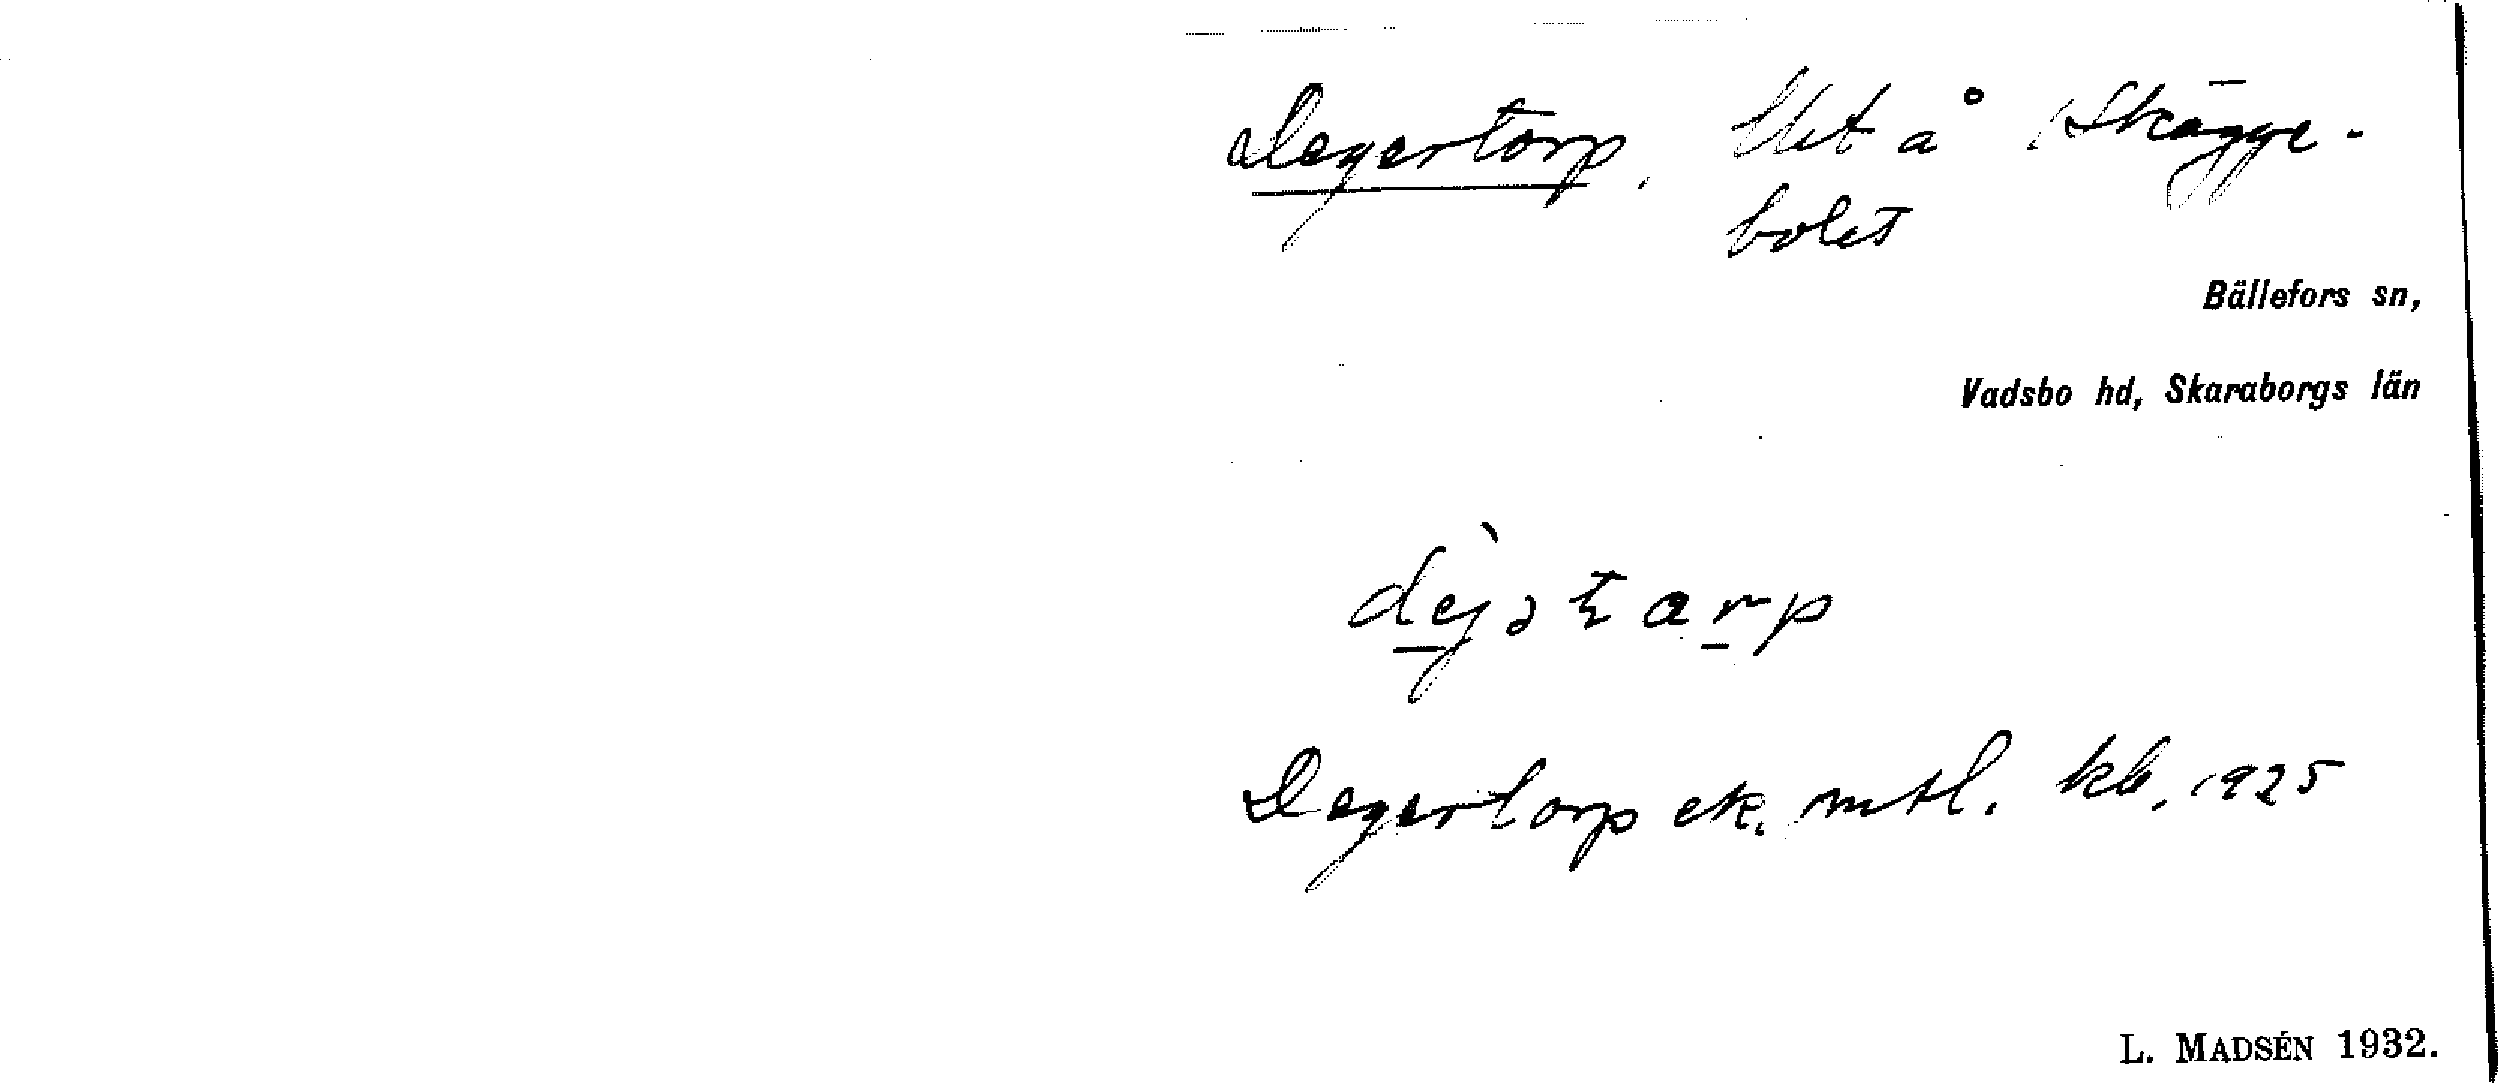 Degertorp, lht å Skägge-
bolet
Bällefors sn,
Vadsbo hd, Skaraborgs län
dèjətarp
Degertorp ek. mtl. kb. 1925
L. MADSÉN 1932.